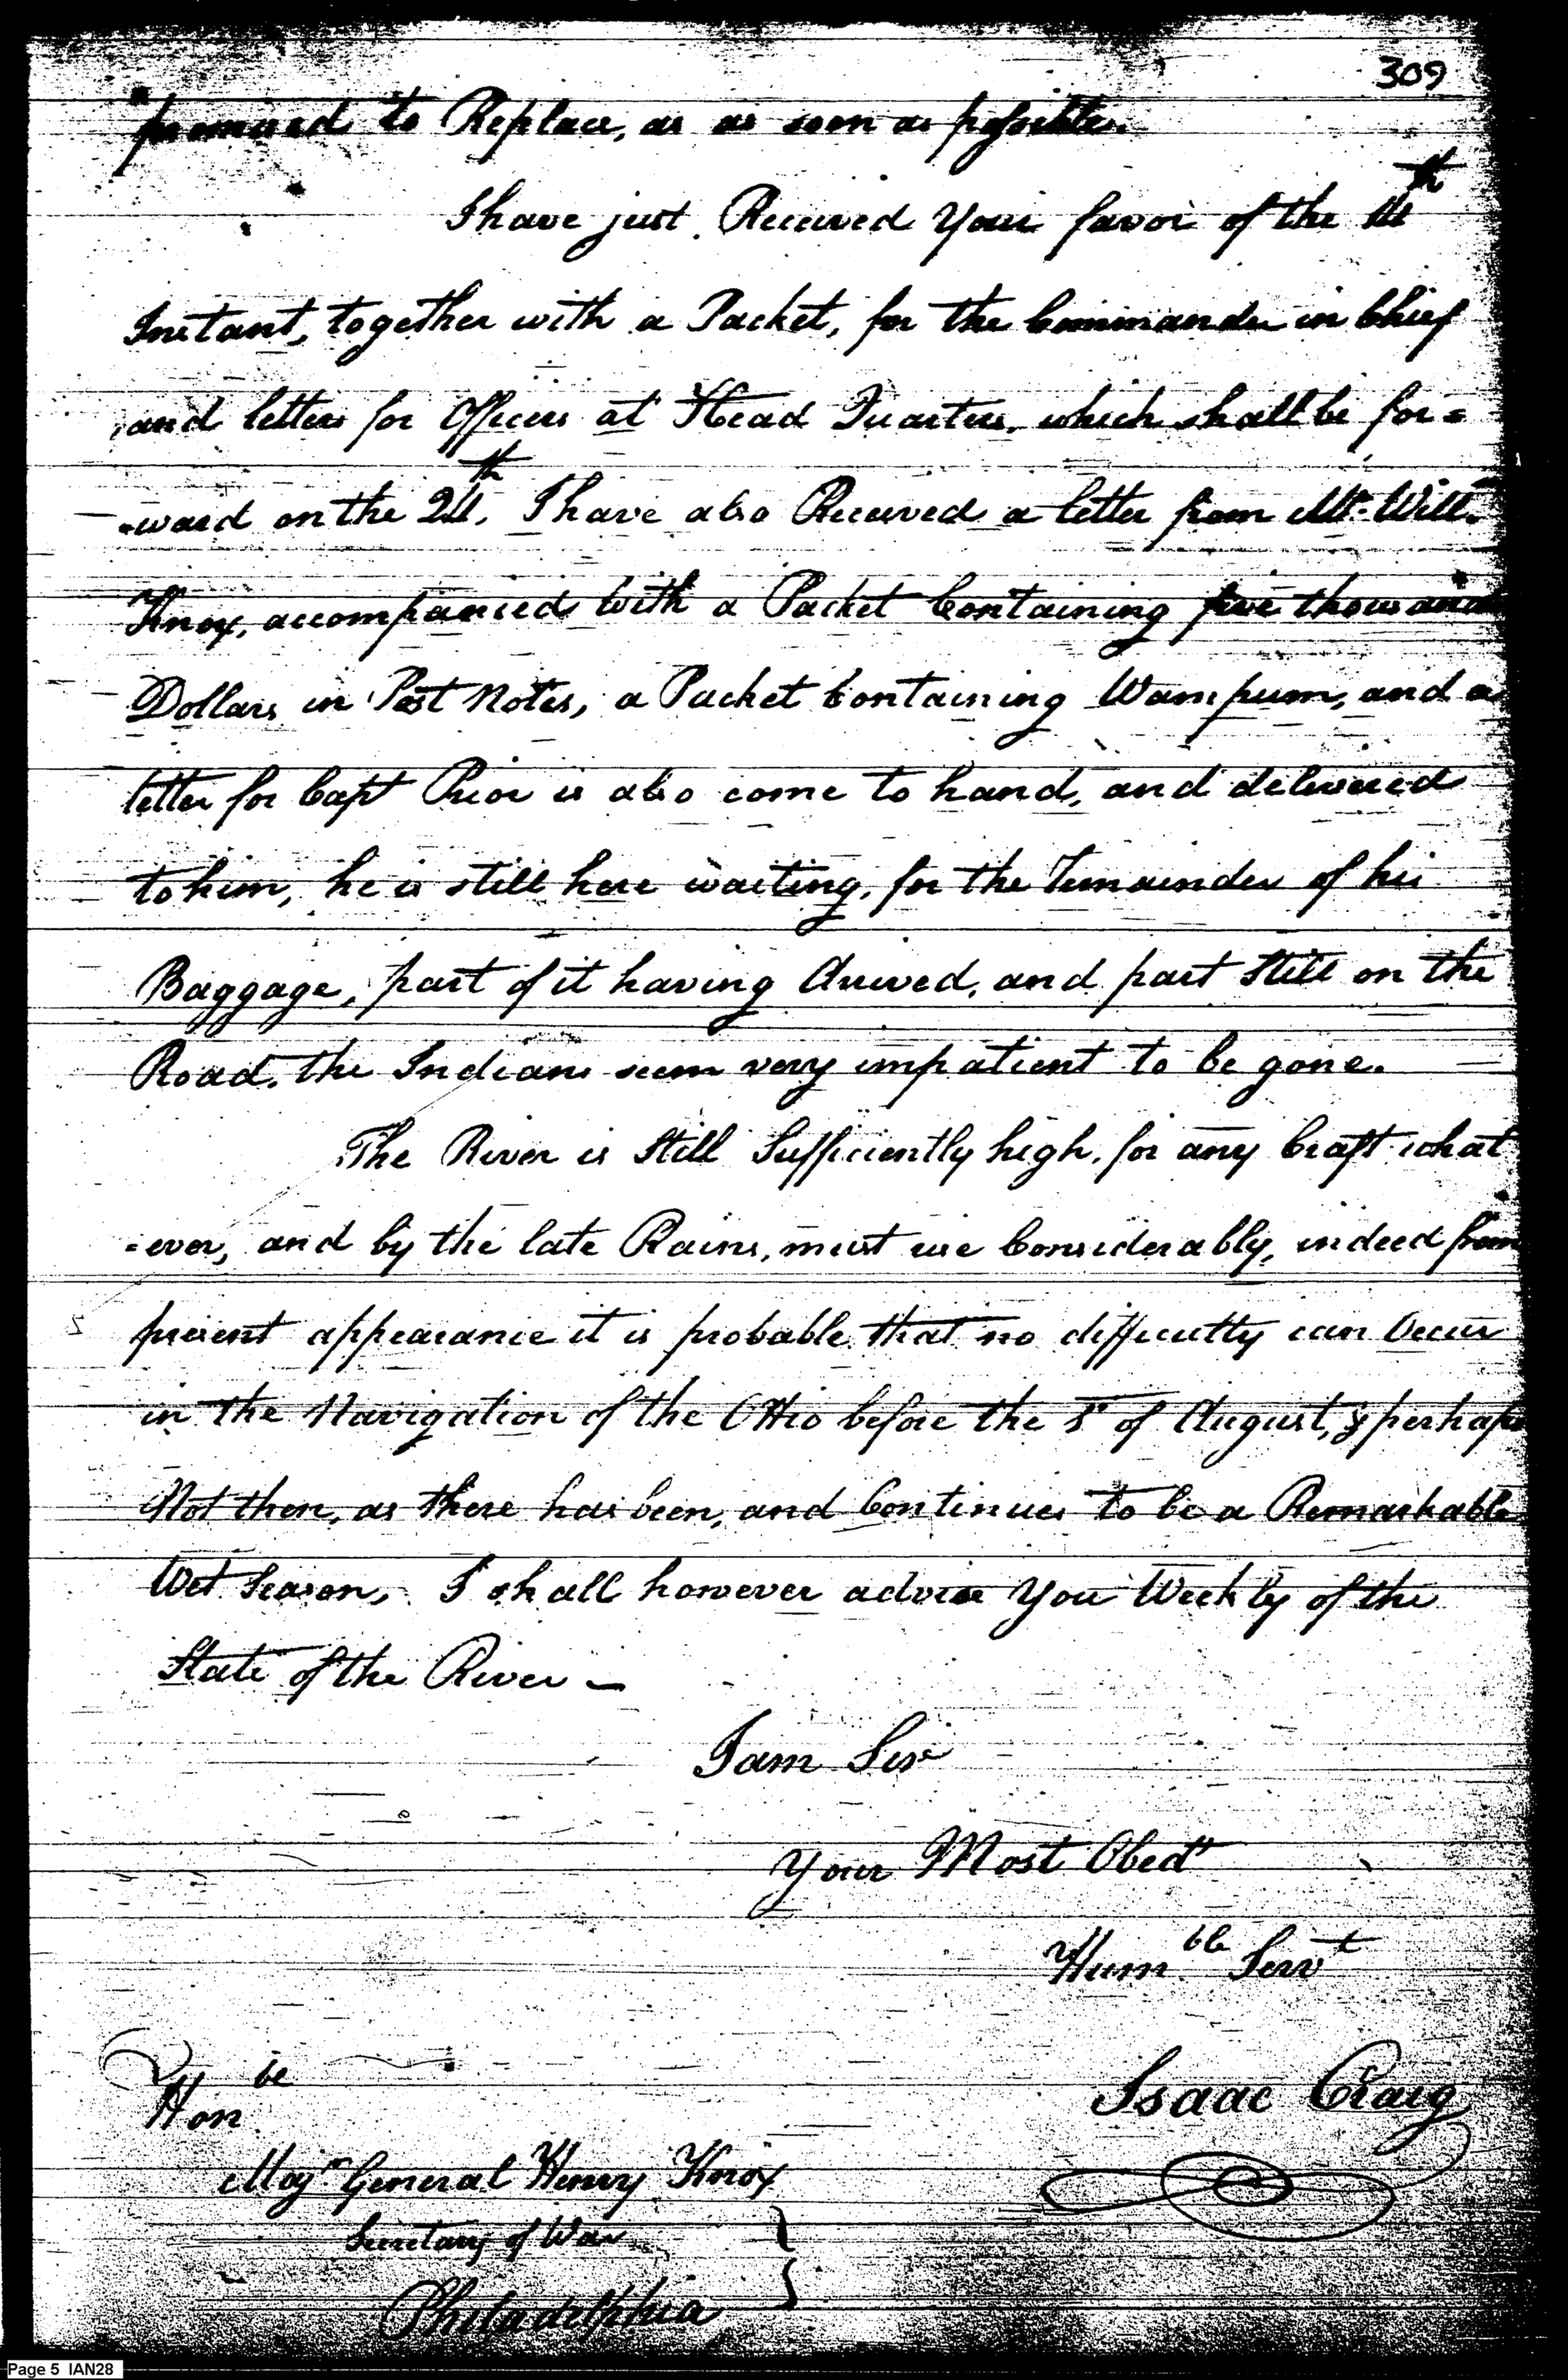 309
promised to Replace, as as soon as possible.
I have just Received Your favor of the th
Instant, together with a Packet, for the Commander in Chief
and letters for Officers at Head Quarters, which shall be for=
=ward on the 24th, I have also Received a letter from Mr. Willm.
Knox, accompanied with a Packet Containing five thousand
Dollars in Post Notes, a Packet Containing Wampum, and a
letter for Capt Prior is also come to hand, and delivered
to him, he is still here waiting, for the Remainder of his
Baggage, part of it having Arrived, and part Still on the
Road, the Indians seem very impatient to be gone.
The River is Still Sufficiently high, for any Craft what
=ever, and by the late Rains, must rise Considerably, indeed from
present appearance it is probable that no difficulty can Occur
in the Navigation of the Ohio before the 1st of August, & perhaps
Not then, as there has been, and Continues to be a Remarkable
Wet Season, I shall however advise You Weekly of the
State of the River —
I am Sir
Your Most Obedt
Humble Servt
Isaac Craig
Honble
Majr General Henry Knox
Secretary of War
Philadelphia
Page 5 IAN28